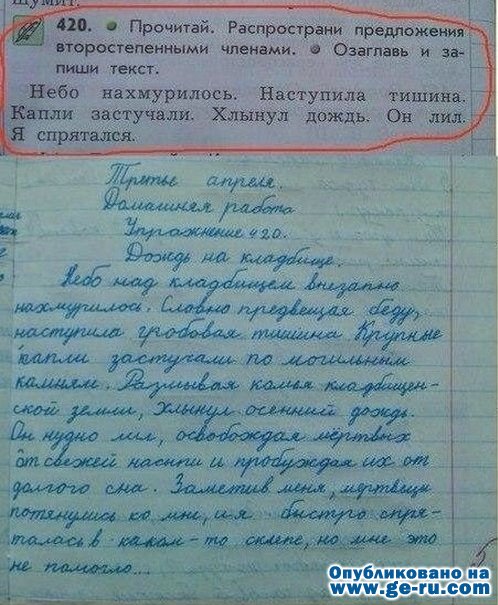 420. • Прочитай. Распространи предложения
второстепенными членами. • Озаглавь и за-
пиши текст.
Небо нахмурилось. Наступила тишина.
Капли застучали. Хлынул дождь. Он лил.
Я спрятался.
Третье апреля.
Домашняя работа
Упражнение 420.
Дождь на кладбище.
Небо над кладбищем внезапно
нахмурилось. Словно предвещая беду,
наступила гробовая тишина Крупные
капли застучали по могильным
камням. Размывая комья кладбищен-
ской земли, хлынул осенний дождь.
Он нудно лил, освобождая мёртвых
от свежей насыпи и пробуждая их от
долгого сна. Заметив меня, мертвецы
потянулись ко мне, и я быстро спря-
талась в каком-то склепе, но мне это
не помогло...
5
Опубликовано на
www.ge-ru.com